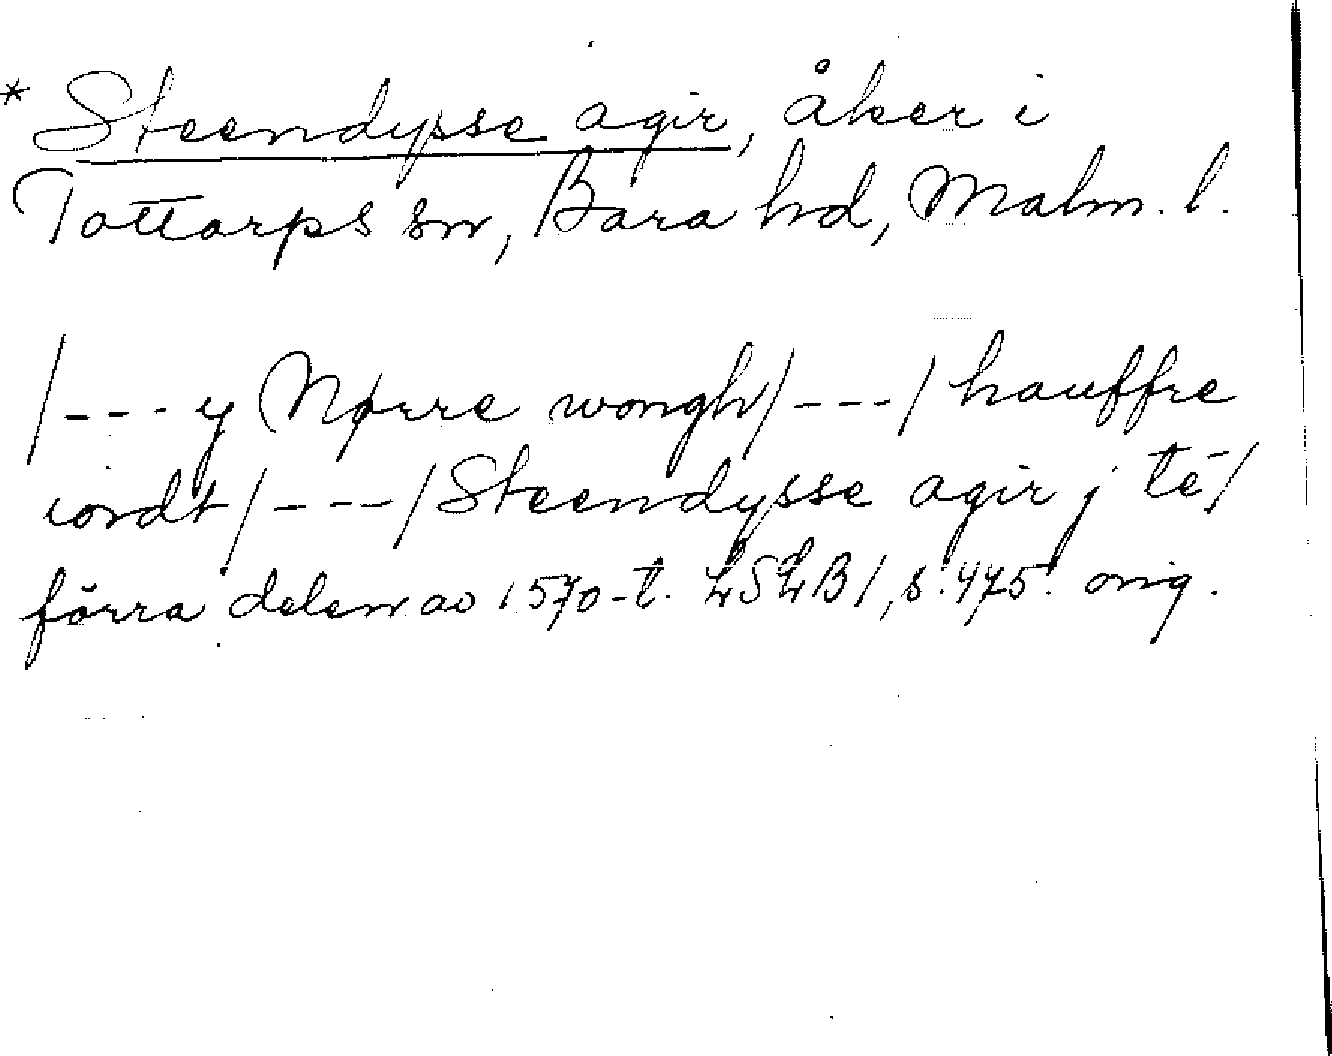 * Steendysse agir, åker i
Tottarps sn, Bara hd, Malm. l.
/--- y Nørre wongh/---/ hauffre
iordt/---/ Steendysse agir j tē/
förra delen av 1570-t. LSLB 1, s. 475. orig.